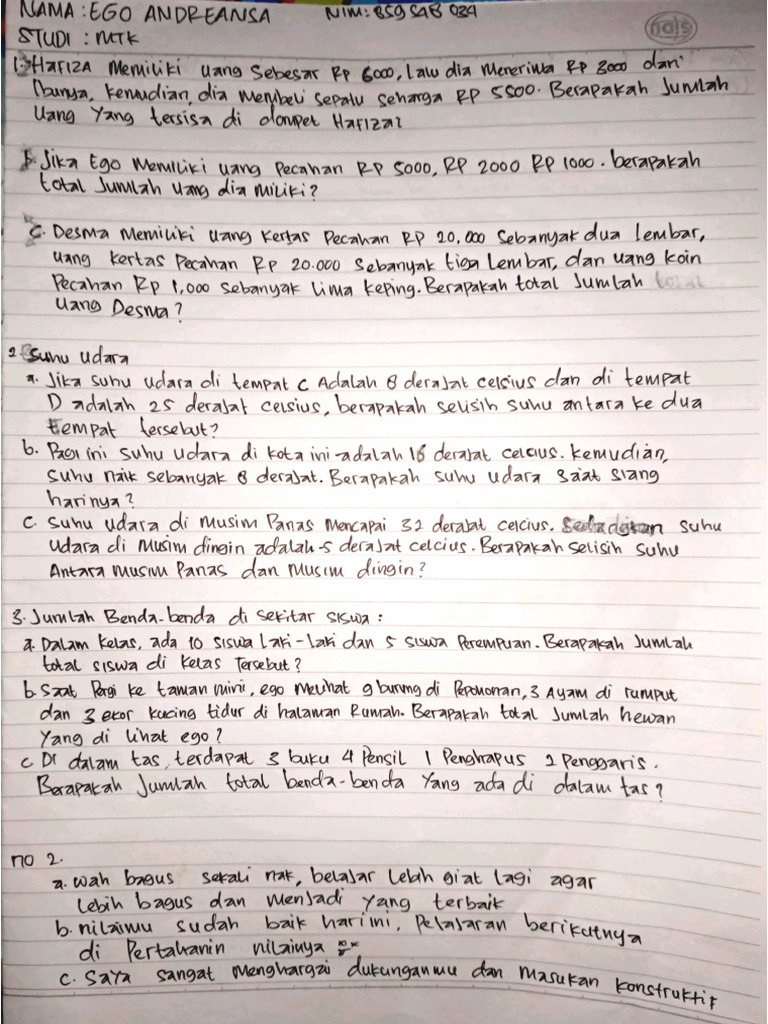 NAMA : EGO ANDREANSA NIM: 859 SAB 034
STUDI : MTK
1. HAFIZA Memiliki uang Sebesar Rp 6000, Lalu dia Menerima RP 3000 dari
Ibunya, Kemudian, dia Membeli sepatu seharga RP 5500. Berapakah Jumlah
Uang Yang tersisa di dompet Hafiza?
b. Jika Ego Memiliki uang Pecahan RP 5000, RP 2000 RP 1000. berapakah
total Jumlah uang dia miliki?
C. Desma Memiliki uang Kertas Pecahan RP 20,000 Sebanyak dua lembar,
uang kertas Pecahan Rp 20.000 Sebanyak tiga Lembar, dan uang Koin
Pecahan Rp 1,000 sebanyak Lima keping. Berapakah total Jumlah total
uang Desma?
2. Suhu udara
a. Jika suhu udara di tempat C Adalah 8 derajat celcius dan di tempat
D adalah 25 derajat celsius, berapakah selisih suhu antara ke dua
tempat tersebut?
b. Pagi ini suhu udara di kota ini adalah 16 derajat celcius. kemudian,
suhu naik sebanyak 8 derajat. Berapakah suhu udara saat siang
harinya?
C. Suhu udara di Musim Panas Mencapai 32 derajat celcius. suhu
udara di Musim dingin adalah -5 derajat celcius. Berapakah selisih suhu
Antara musim Panas dan Musim dingin?
3. Jumlah Benda-benda di sekitar siswa :
a. Dalam Kelas, ada 10 siswa Laki-laki dan 5 siswa Perempuan. Berapakah Jumlah
total siswa di kelas Tersebut?
b. Saat Pergi ke taman mini, ego melihat 9 burung di Pepohonan, 3 Ayam di rumput
dan 3 ekor kucing tidur di halaman Rumah. Berapakah total Jumlah hewan
Yang di lihat ego?
C Di dalam tas, terdapat 3 buku 4 Pensil 1 Penghapus 2 Penggaris.
Berapakah Jumlah total benda-benda Yang ada di dalam tas?
no 2.
a. wah bagus sekali nak, belajar lebih giat lagi agar
Lebih bagus dan menjadi yang terbaik
b. nilaimu sudah baik hari ini, Pelajaran berikutnya
di Pertahanin nilainya
c. saya sangat menghargai dukunganmu dan Masukan konstruktif